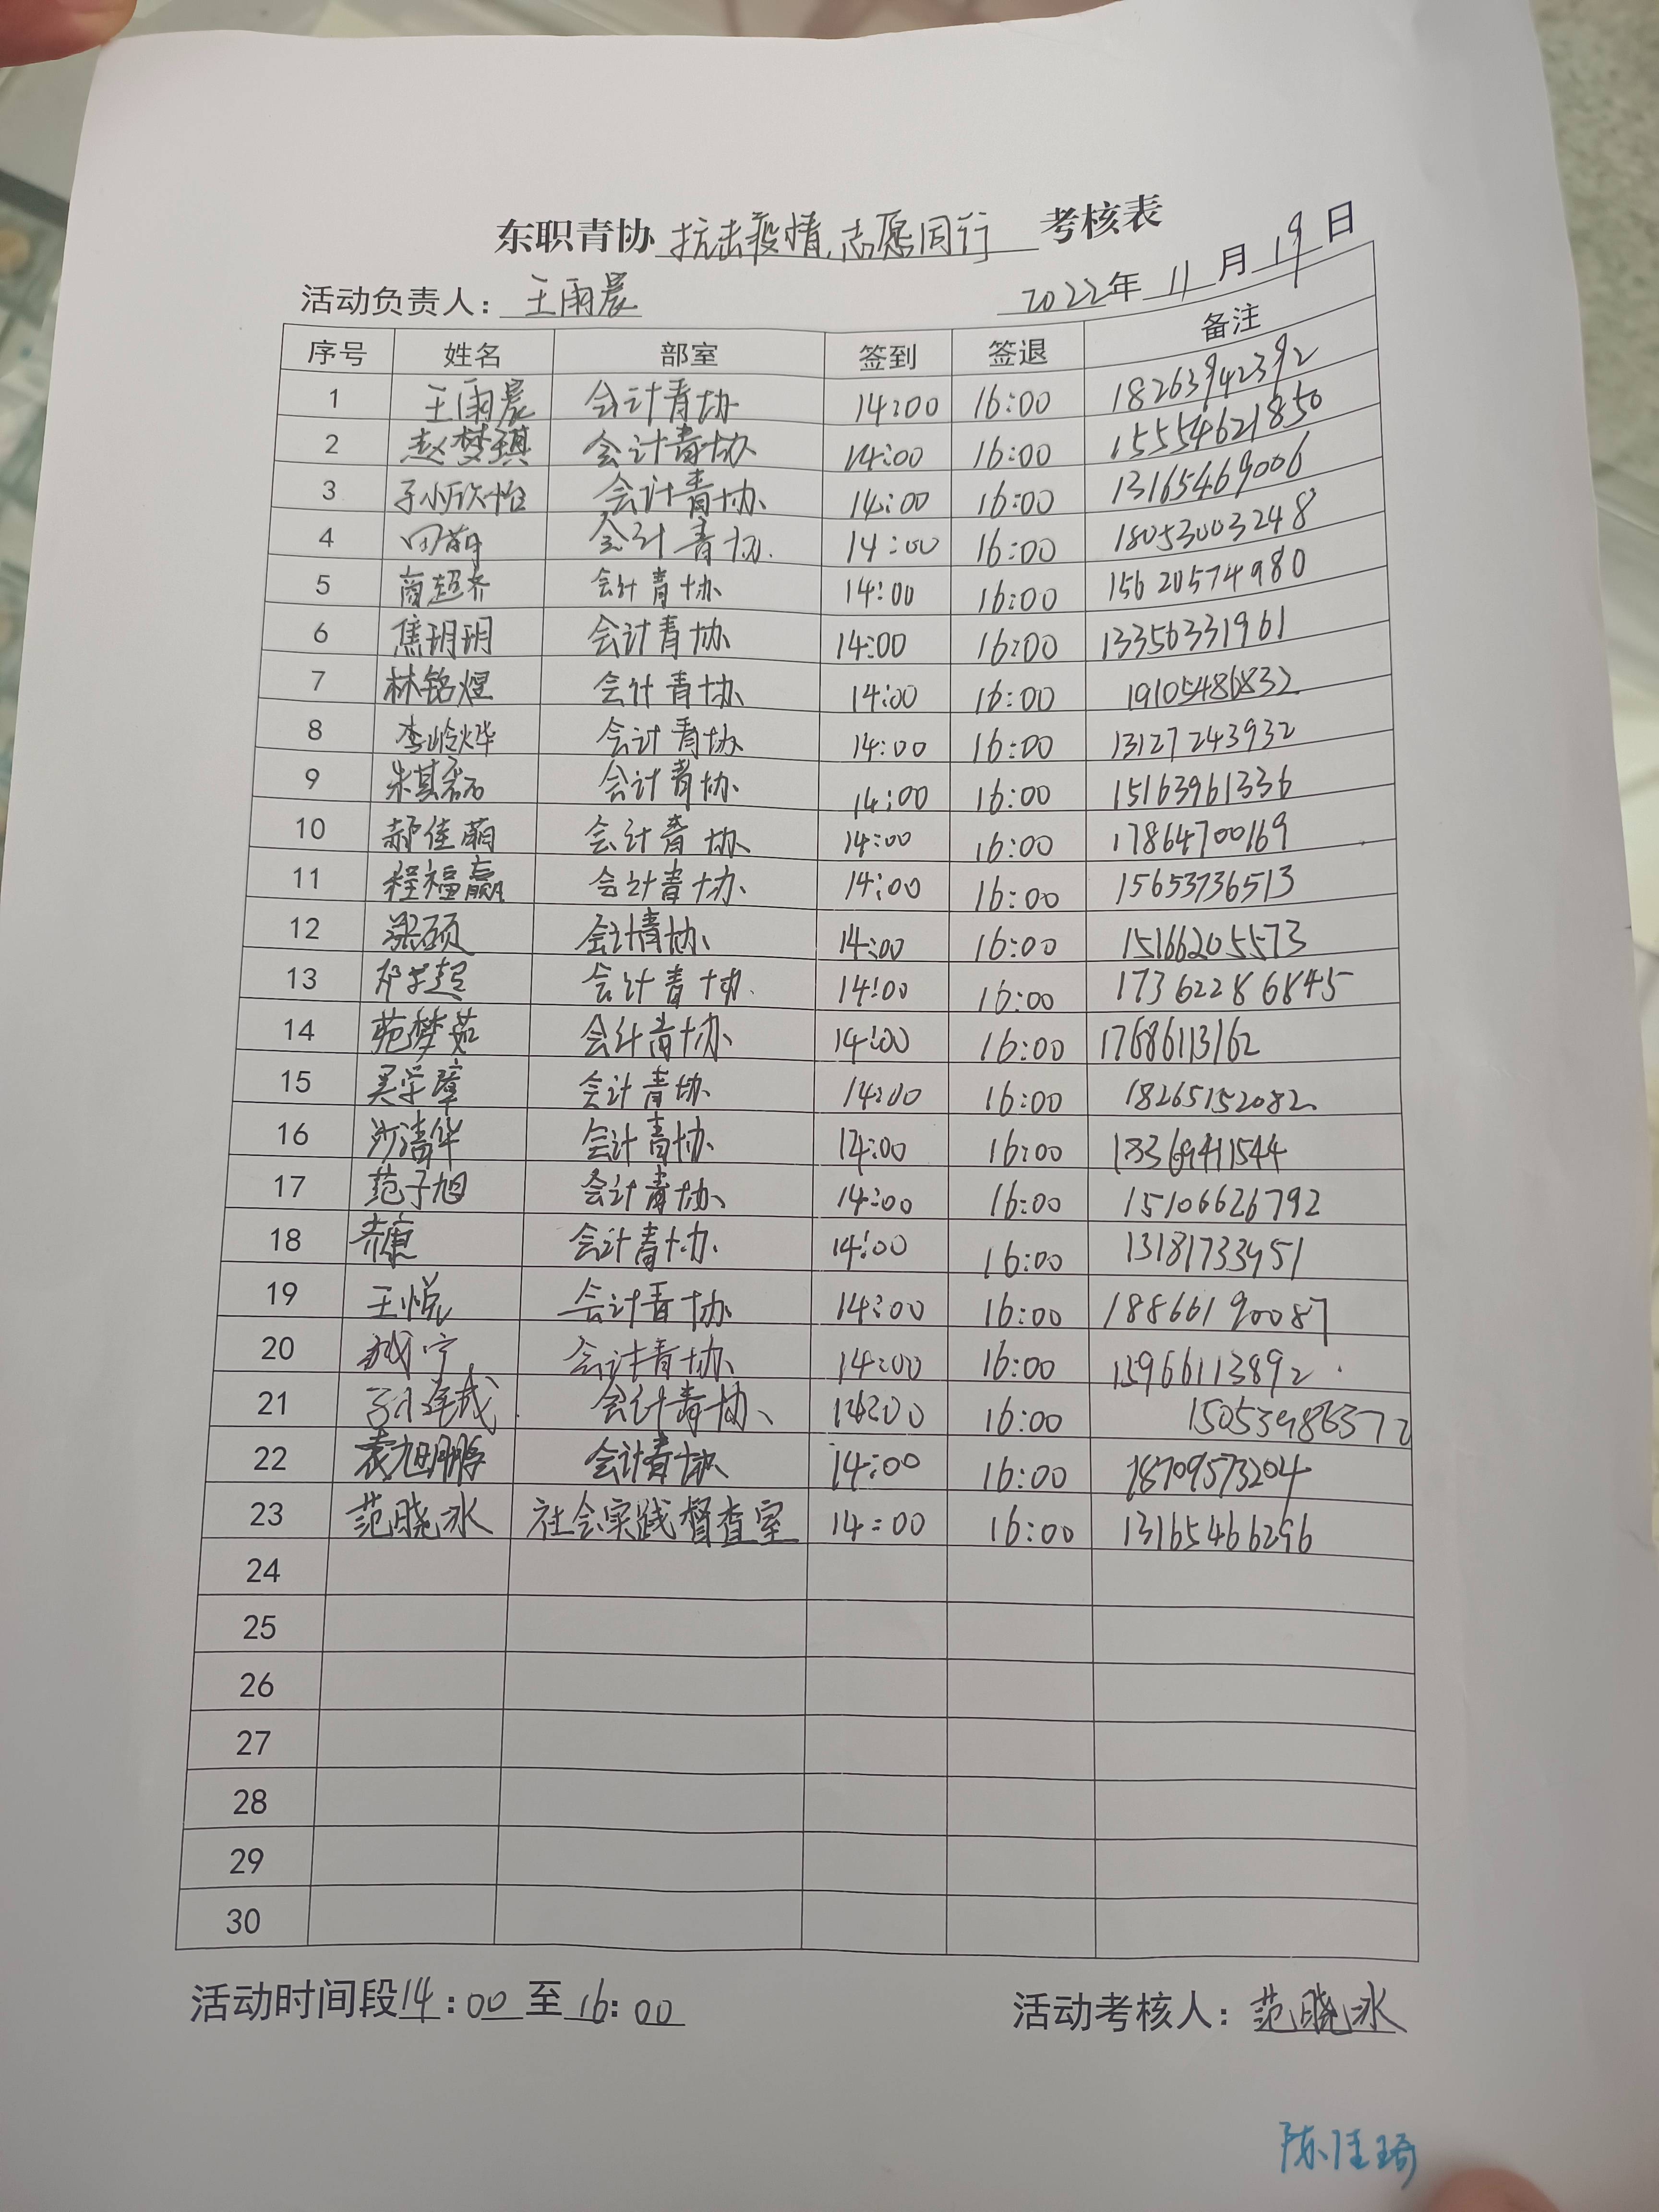 东职青协 抗击疫情,志愿同行 考核表
活动负责人: 王雨晨 2022年 11 月 19 日
序号 姓名 部室 签到 签退 备注
1 王雨晨 会计青协 14:00 16:00 18263942392
2 赵梦琪 会计青协 14:00 16:00 15554621850
3 孙欣怡 会计青协 14:00 16:00 13165469006
4 田萌 会计青协 14:00 16:00 18053003248
5 商超齐 会计青协 14:00 16:00 15620574980
6 焦玥玥 会计青协 14:00 16:00 13356331961
7 林铭煜 会计青协 14:00 16:00 19105486832
8 李岭烨 会计青协 14:00 16:00 13127243932
9 朱其磊 会计青协 14:00 16:00 15163961336
10 郝佳萌 会计青协 14:00 16:00 17864700169
11 程福赢 会计青协 14:00 16:00 15653736513
12 梁硕 会计青协 14:00 16:00 15166205573
13 会计青协 14:00 16:00 17362286845
14 苑梦茹 会计青协 14:00 16:00 17686113162
15 吴学璋 会计青协 14:00 16:00 18265152082
16 沙清华 会计青协 14:00 16:00 18369411544
17 范子旭 会计青协 14:00 16:00 15106626792
18 齐康 会计青协 14:00 16:00 13181733951
19 王悦 会计青协 14:00 16:00 18866190087
20 会计青协 14:00 16:00 15966113892
21 会计青协 14:00 16:00 15053986372
22 袁旭鹏 会计青协 14:00 16:00 18709573204
23 范晓冰 社会实践督查室 14:00 16:00 13165466296
24
25
26
27
28
29
30
活动时间段14:00至16:00 活动考核人: 范晓冰
陈佳琦